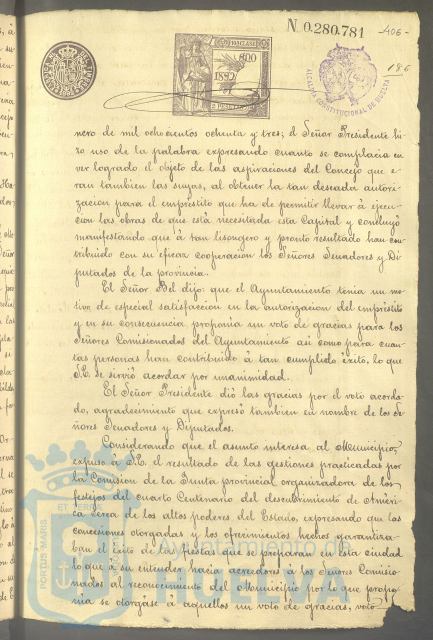 N 0.280.781
406-
186
ALCALDIA CONSTITUCIONAL DE HUELVA
nero de mil ochocientos ochenta y tres; el Señor Presidente hi-
zo uso de la palabra expresando cuanto se complacia en
ver logrado el objeto de las aspiraciones del Concejo que e-
ran tambien las suyas, al obtener la tan deseada autori-
zacion para el empréstito que ha de permitir llevar á ejecu-
cion las obras de que está necesitada esta Capital y concluyó
manifestando que á tan lisongero y pronto resultado han con-
tribuido con su eficaz cooperacion los Señores Senadores y Di-
putados de la provincia.
El Señor Bel dijo: que el Ayuntamiento tenia un mo-
tivo de especial satisfaccion en la autorizacion del empréstito
y en su consecuencia proponia un voto de gracias para los
Señores Comisionados del Ayuntamiento asi como para cuan-
tas personas han contribuido á tan cumplido éxito, lo que
S.E. se sirvió acordar por unanimidad.
El Señor Presidente dió las gracias por el voto acorda-
do, agradecimiento que expresó tambien en nombre de los se-
ñores Senadores y Diputados.
Considerando que el asunto interesa al Municipio,
expuso á S.E. el resultado de las gestiones practicadas por
la Comision de la Junta provincial organizadora de los
festejos del cuarto Centenario del descubrimiento de Améri-
ca cerca de los altos poderes del Estado, expresando que las
concesiones otorgadas y los ofrecimientos hechos garantiza-
ban el éxito de las fiestas que se preparan en esta ciudad
lo que á su entender hacia acreedores á los Señores Comisio-
nados al reconocimiento del Municipio por lo que propo-
nia se otorgase á aquellos un voto de gracias, voto
PORTUS MARIS
ET TERRE
Ayuntamiento de
HUELVA